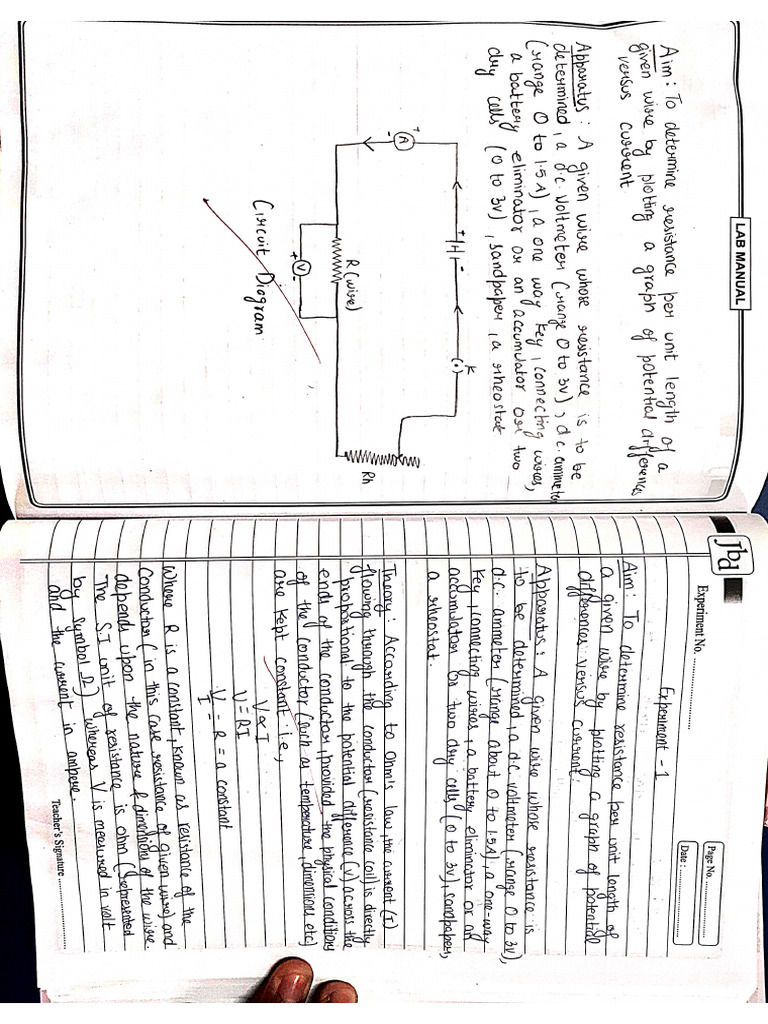 LAB MANUAL
Aim: To determine resistance per unit length of a
given wire by plotting a graph of potential differences
versus current
Apparatus: A given wire whose resistance is to be
determined, a d.c. voltmeter (range 0 to 3v), d.c. ammeter
(range 0 to 1.5 A), a one way key, connecting wires,
a battery eliminator or an accumulator or two
dry cells (0 to 3v), sandpaper, a rheostat
K
(•)
+ -
+
A
-
R (wire)
+ V -
Rh
Circuit Diagram
Jbd
Experiment No.
Page No.
Date :
Experiment - 1
Aim: To determine resistance per unit length of
a given wire by plotting a graph of potential
differences versus current.
Apparatus: A given wire whose resistance is
to be determined, a d.c. voltmeter (range 0 to 3v),
d.c. ammeter (range about 0 to 1.5A), a one-way
key, connecting wires, a battery eliminator or an
accumulator or two dry cells (0 to 3v), sandpaper,
a rheostat.
Theory: According to Ohm's law, the current (I)
flowing through the conductor (resistance coil) is directly
proportional to the potential difference (V) across the
ends of the conductor, provided the physical conditions
of the conductor (such as temperature, dimensions etc)
are kept constant i.e,
V∝I
V=RI
V/I = R = a constant
Where R is a constant, known as resistance of the
conductor (in this case resistance of given wire) and
depends upon the nature & dimensions of the wire.
The SI unit of resistance is ohm (represented
by symbol Ω) whereas V is measured in volt
and the current in ampere.
Teacher's Signature